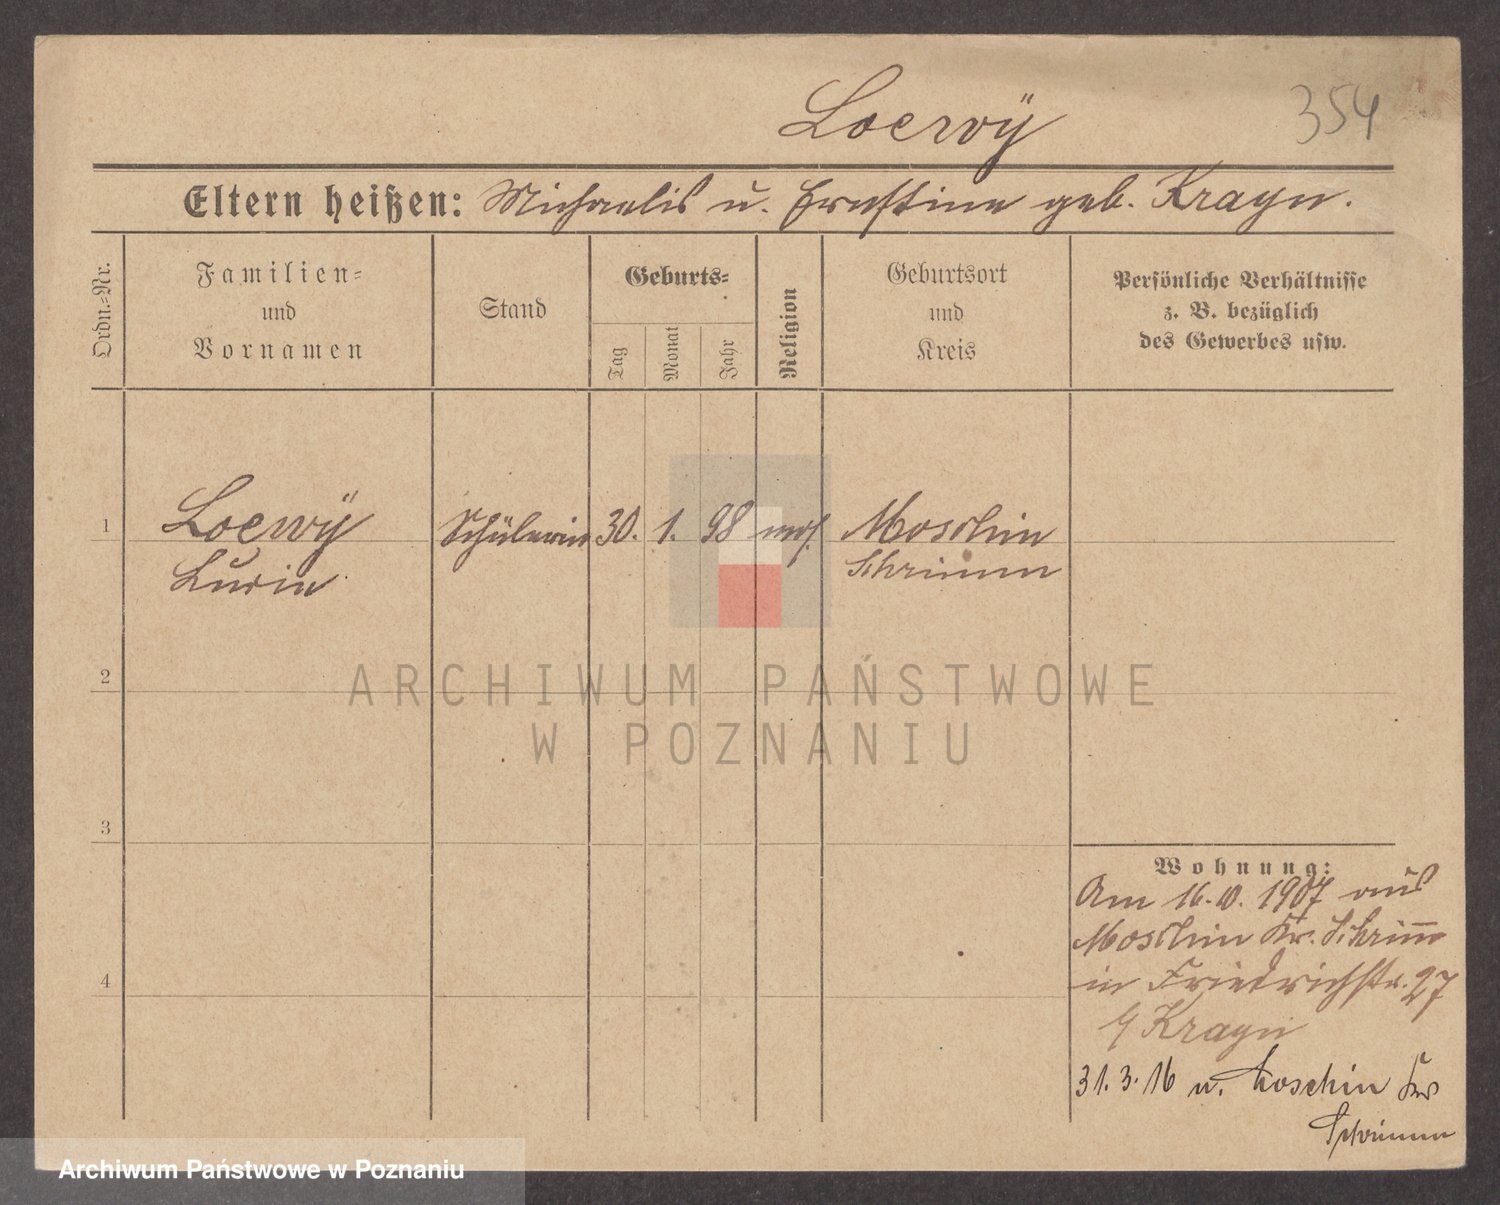 Loewÿ 354
Eltern heißen: Michaelis u. Ernstine geb. Krayn.
Ordn.-Nr.
Familien-
und
Vornamen
Stand
Geburts-
Tag
Monat
Jahr
Religion
Geburtsort
und
Kreis
Persönliche Verhältnisse
z. B. bezüglich
des Gewerbes usw.
1 Loewÿ Schülerin 30. 1. 98 mos. Moschin
Schrimm
2
3
4
Wohnung:
Am 16.10.1907 aus
Moschin Kr. Schrim̅
in Friedrichstr. 27
b/ Krayn
31.3.16 n. Moschin Kr
Schrimm
ARCHIWUM PAŃSTWOWE
W POZNANIU
Archiwum Państwowe w Poznaniu